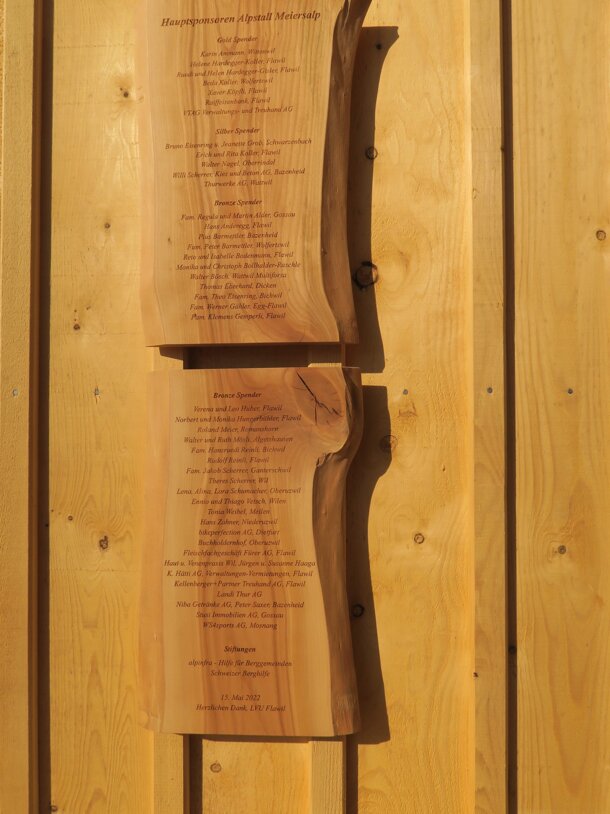 Hauptsponsoren Alpstall Meiersalp
Gold Spender
Karin Ammann, Wittenwil
Helene Hardegger-Koller, Flawil
Ruedi und Helen Hardegger-Gisler, Flawil
Beda Koller, Wolfertswil
Xaver Köpfli, Flawil
Raiffeisenbank, Flawil
VTAG Verwaltungs- und Treuhand AG
Silber Spender
Bruno Eisenring u. Jeanette Grob, Schwarzenbach
Erich und Rita Koller, Flawil
Walter Nagel, Oberrindal
Willi Scherrer, Kies und Beton AG, Bazenheid
Thurwerke AG, Wattwil
Bronze Spender
Fam. Regula und Martin Alder, Gossau
Hans Anderegg, Flawil
Pius Barmettler, Bazenheid
Fam. Peter Barmettler, Wolfertswil
Reto und Isabelle Bodenmann, Flawil
Monika und Christoph Bollhalder-Raschle
Walter Bösch, Wattwil Multiforsa
Thomas Eberhard, Dicken
Fam. Theo Eisenring, Bichwil
Fam. Werner Gähler, Egg-Flawil
Fam. Klemens Gemperli, Flawil
Bronze Spender
Verena und Leo Huber, Flawil
Norbert und Monika Hungerbühler, Flawil
Roland Meier, Romanshorn
Walter und Ruth Mösli, Algetshausen
Fam. Hansruedi Reinli, Bichwil
Rudolf Reinli, Flawil
Fam. Jakob Scherrer, Ganterschwil
Theres Scherrer, Wil
Lena, Alina, Lara Schumacher, Oberuzwil
Ennio und Thiago Vetsch, Wilen
Tonia Weibel, Meilen
Hans Zahner, Niederuzwil
bikeperfection AG, Dietfurt
Buchholdernhof, Oberuzwil
Fleischfachgeschäft Fürer AG, Flawil
Haut u. Venenpraxis Wil, Jürgen u. Susanne Haaga
K. Hütti AG, Verwaltungen-Vermietungen, Flawil
Kellenberger+Partner Treuhand AG, Flawil
Landi Thur AG
Niba Getränke AG, Peter Saxer, Bazenheid
Immobilien AG, Gossau
WS4sports AG, Mosnang
Stiftungen
alpinfra - Hilfe für Berggemeinden
Schweizer Berghilfe
15. Mai 2022
Herzlichen Dank, LVU Flawil